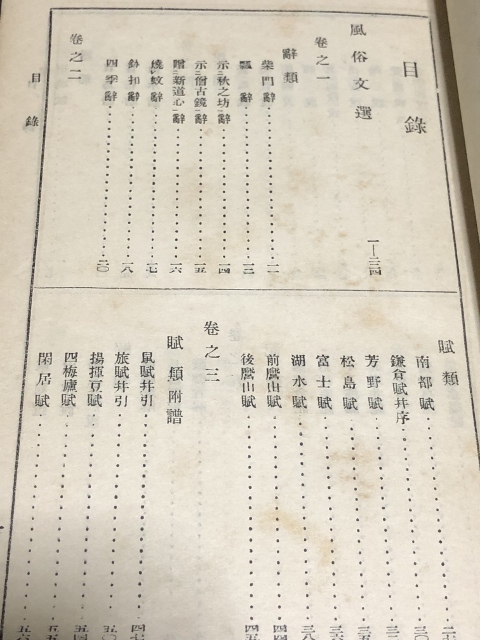 目錄
風俗文選……一—三四
卷之一
辭類
柴門辭……一一
瓢辭……一三
示秋之坊辭……一四
示僧古鏡辭……一五
贈新道心辭……一六
燒蚊辭……一七
鉢扣辭……一八
四季辭……二〇
卷之二
賦類
南都賦……
鎌倉賦幷序……三〇
芳野賦……
松島賦……
富士賦……
湖水賦……三八
前麿山賦……四四
後麿山賦……四五
卷之三
賦類附譜
鼠賦幷引……四七
旅賦幷引……五〇
揚揮豆賦……
四梅廬賦……
閑居賦……
目錄